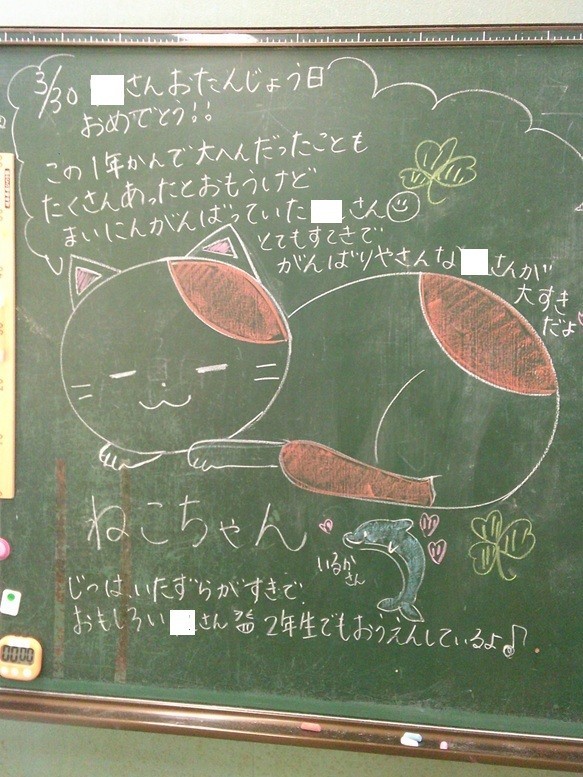 3/30 さんおたんじょう日
おめでとう!!
この1年かんで大へんだったことも
たくさんあったとおもうけど
まいにんがんばっていた さん
とてもすてきで
がんばりやさんな さんが
大すき
だよ
ねこちゃん
いるか
さん
じつは、いたずらがすきで
おもしろい さん 2年生でもおうえんしているよ♪
00:00